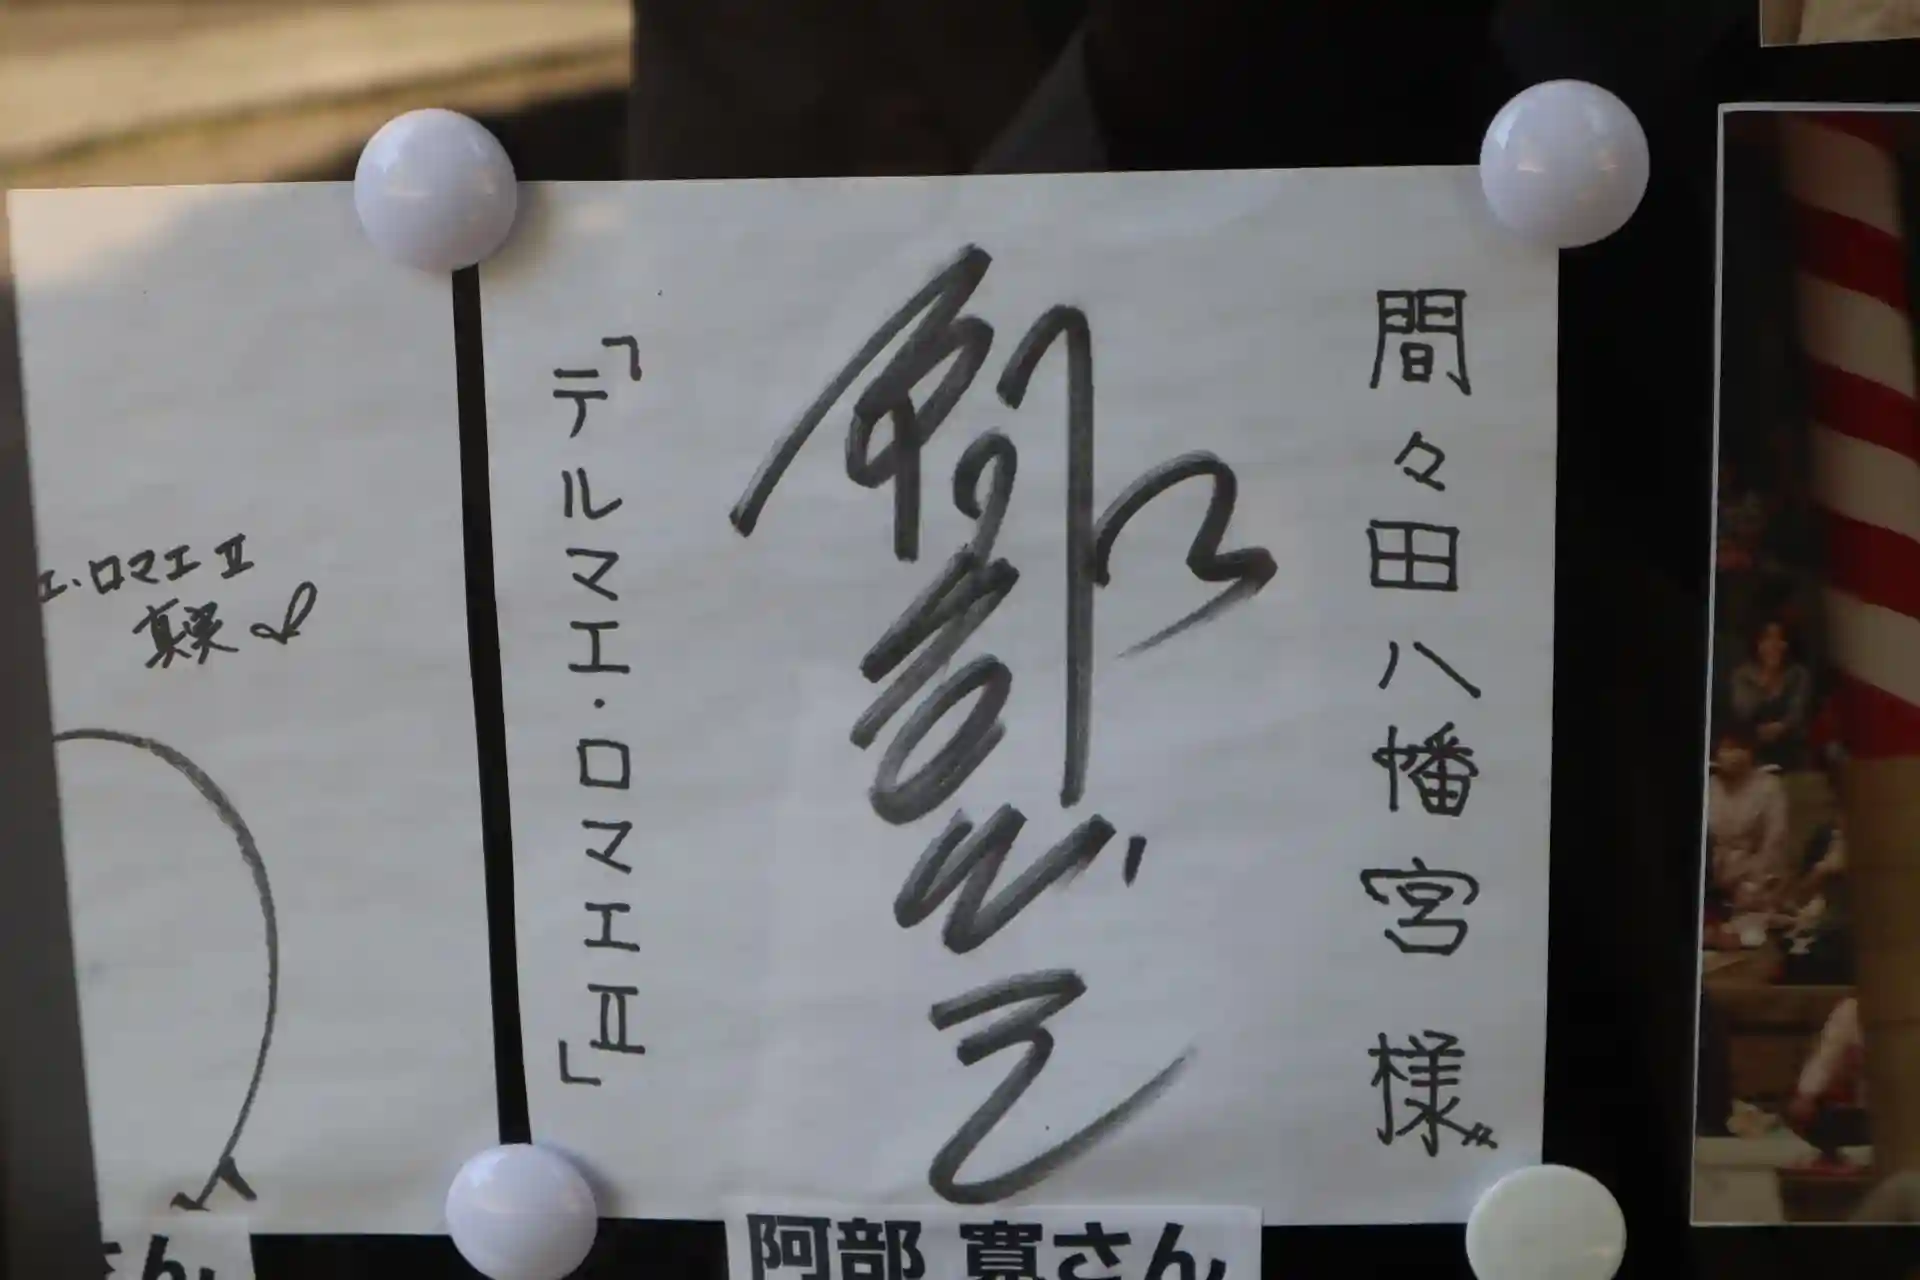 間々田八幡宮 様
「テルマエ・ロマエⅡ」
阿部 寛さん
エ・ロマエⅡ
真実
さん